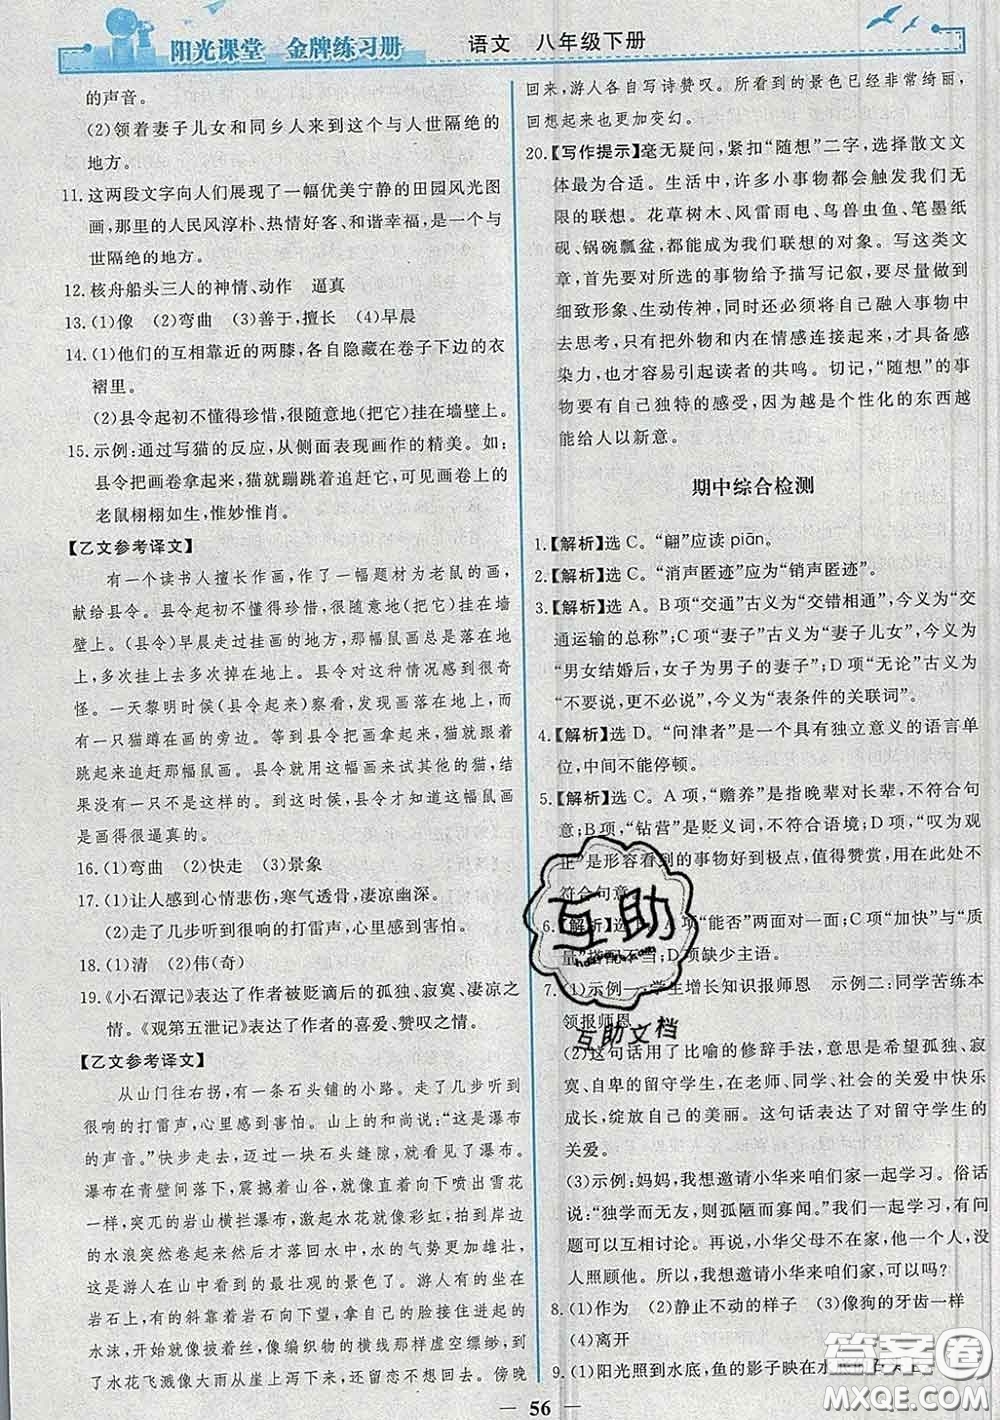 阳光课堂 金牌练习册 语文 八年级下册
的声音。
(2)领着妻子儿女和同乡人来到这个与人世隔绝的
地方。
11.这两段文字向人们展现了一幅优美宁静的田园风光图
画,那里的人民风淳朴、热情好客、和谐幸福,是一个与
世隔绝的地方。
12.核舟船头三人的神情、动作 逼真
13.(1)像 (2)弯曲 (3)善于,擅长 (4)早晨
14.(1)他们的互相靠近的两膝,各自隐藏在卷子下边的衣
褶里。
(2)县令起初不懂得珍惜,很随意地(把它)挂在墙壁上。
15.示例:通过写猫的反应,从侧面表现画作的精美。如:
县令把画卷拿起来,猫就蹦跳着追赶它,可见画卷上的
老鼠栩栩如生,惟妙惟肖。
【乙文参考译文】
有一个读书人擅长作画,作了一幅题材为老鼠的画,
献给县令。县令起初不懂得珍惜,很随意地(把它)挂在墙
壁上。(县令)早晨走过挂画的地方,那幅鼠画总是落在地
上,多次挂上去多次落下来。县令对这种情况感到很奇
怪。一天黎明时候(县令起来)察看,发现画落在地上,并
有一只猫蹲在画的旁边。等到县令把画拿起来,猫就跟着
跳起来追赶那幅鼠画。县令用这幅画来试其他的猫,结果
没有一只不是这样的。到这时候,县令才知道这幅鼠画
是画得很逼真的。
16.(1)弯曲 (2)快走 (3)景象
17.(1)让人感到心情悲伤,寒气透骨,凄凉幽深。
(2)走了几步听到很响的打雷声,心里感到惊恐。
18.(1)清 (2)伟(奇)
19.《小石潭记》表达了作者被贬谪后的孤独、寂寞、凄凉之
情。《观第五泄记》表达了作者的喜爱、赞叹之情。
【乙文参考译文】
从山门往右拐,有一条石头铺的小路。走了几步听到
很响的打雷声,心里感到害怕。山上的和尚说:“这是瀑布
的声音。”快步走去,迈过一块石头缝隙,瀑布就看见了。
瀑布在青壁中间,震撼着山谷,就像大雪向下喷射一样
一样,突兀的岩山横拦瀑布,激起水花就像彩虹,向外喷射
的水浪突然卷起来然后才落回水中,水的气势更加雄壮,
这是游人在山中看到的最壮观的景色。游人斜躺在
岩石上,仰着脸向下望,变幻自己的脸接住迸起的水
水,刚开始看的时候,像编织物的横线那样虚空缥缈,到
了水花飞溅满天雨从山崖上泻下来,大家全都走了。傍晚
回来,游人各自写诗赞叹。所看到的景色已经非常绮丽,
回想起来也更加变幻。
20.【写作提示】毫无疑问,紧扣“随想”二字,选择散文文
体最为合适。生活中,许多小事物都会触发我们无
限的联想。花草树木、风雷雨电、鸟兽虫鱼、笔墨纸
砚、锅碗瓢盆,都能成为我们联想的对象。写这类文
章,首先要对所选的事物给予描写记叙,要写得
细致形象、生动传神,同时还必须将自己融入事物中
去思考,只有把外物和内在情感连接起来,才具备感
染力,也才容易引起读者的共鸣。切记,“随想”的事
物要有自己独特的感受,因为越是个性化的东西越
能给人以新意。
期中综合检测
1.【解析】选C。“翩”应读piān。
2.【解析】选C。“消声匿迹”应为“销声匿迹”。
3.【解析】选A。B项“交通”古义为“交错相通”,今义为“交
通运输的总称”;C项“妻子”古义为“妻子儿女”,今义为
“男女结婚后,女子为男子的妻子”;D项“无论”古义为
“不要说,更不必说”,今义为“表条件的关联词”。
4.【解析】选D。“问津者”是一个具有独立意义的语言单
位,中间不能停顿。
5.【解析】选C。A项,“赡养”是指晚辈对长辈,不符合句
意;B项,“钻营”是贬义词,不符合语境;D项,“叹为观
止”是形容看到的事物好到极点,值得赞赏,此处不
符合句意。
6.【解析】选B。A项“能否”两面对一面;C项“加快”与“质
量”搭配不当;D项缺少主语。
7.(1)示例一:学生增长知识报师恩 示例二:同学苦练本
领报师恩
(2)这句话用了比喻的修辞手法,意思是希望孤独、寂
寞、自卑的留守学生,在老师、同学、社会的关爱中快乐
成长,绽放自己的美丽。这句话表达了对留守学生的
关爱。
(3)示例:妈妈,我想邀请小华来咱们家一起学习。俗话
说:“独学而无友,则孤陋而寡闻。”我们一起学习,
可以互相讨论。再说,小华父母不在家,他一个人在家,没
人照顾他。所以,我想邀请小华来咱们家,可以吗?
8.(1)作为 (2)静止不动的样子 (3)像狗的牙齿一样
(4)离开
9.(1)阳光照到水底,鱼的影子映在水底的石头上
56
互助
互助文档
答案圈
MXQE.COM